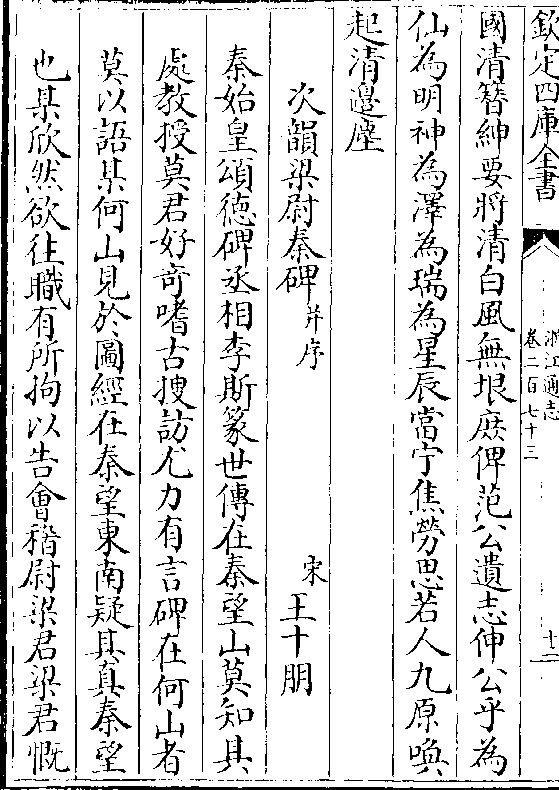 欽定四庫全書
浙江通志
卷二百七十三
十三
國清簪紳要將清白風無垠庶俾范公遺志伸公乎為
仙為明神為澤為瑞為星辰當宁焦勞思若人九原喚
起清邉塵
次韻梁尉秦碑并序
宋王十朋
秦始皇頌德碑丞相李斯篆世傳在秦望山莫知其
處教授莫君好奇嗜古搜訪尤力有言碑在何山者
莫以語某何山見於圖經在秦望東南疑其真秦望
也某欣然欲往職有所拘以告會稽尉梁君梁君慨